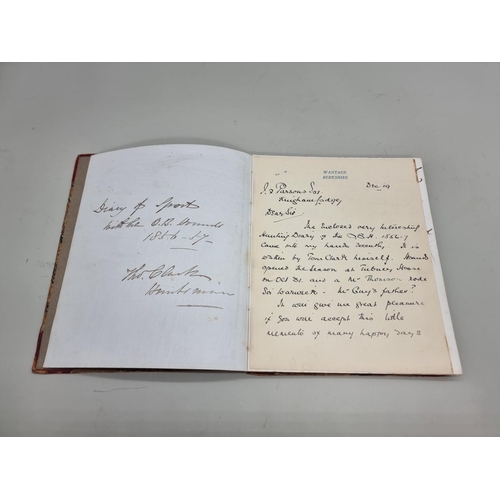 Diary of Sport
with the O.B. Hounds
1856-57
Thos. Clark
Huntsman
WANTAGE
BERKSHIRE
Dec 19
J. Parsons Esq
Kingham Lodge,
Dear Sir
The Enclosed very interesting
Hunting Diary of the O.B.H. 1856-7
Came into my hands recently, It is
written by Tom Clark himself. Hounds
opened the season at Tubney House
on Oct 31. and a Mr Thomson rode
Sir Warwick - Mr Guy's father?
It will give me great pleasure
if you will accept this little
memento of many happy days